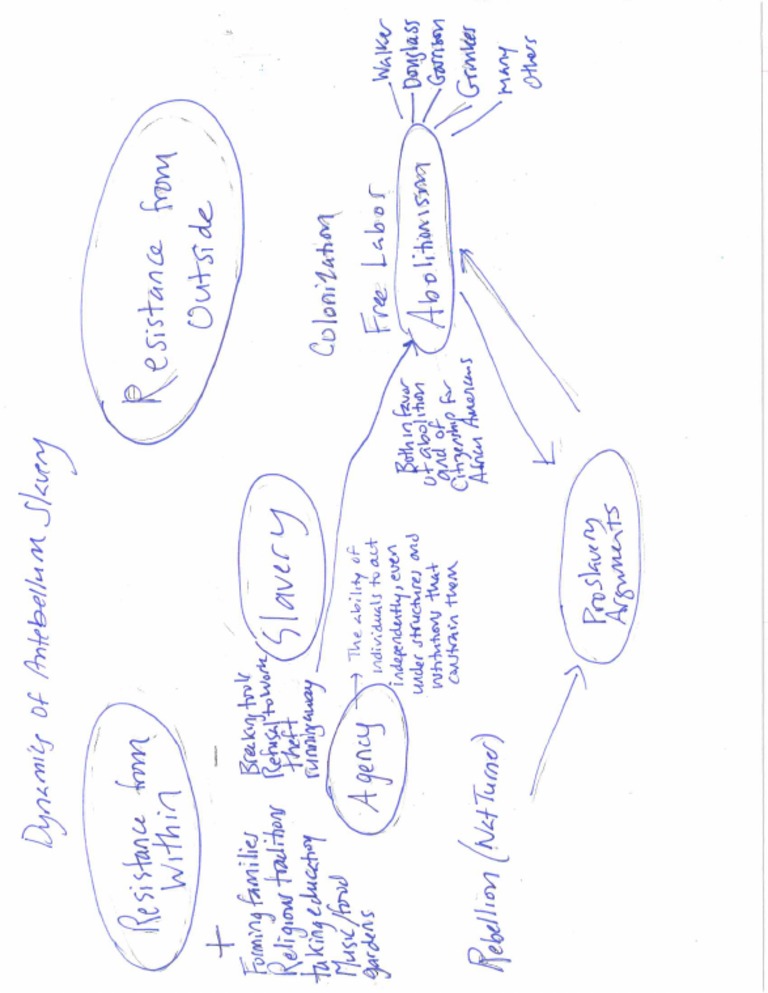 Dynamics of Antebellum Slavery
Resistance from
Within
Resistance from
Outside
+
Forming families
Religious traditions
taking education
Music/food
gardens
-
Breaking tools
Refusal to work
theft
running away
Slavery
Agency
→ The ability of
individuals to act
independently, even
under structures and
institutions that
constrain them
Colonization
Free Labor
Abolitionism
Walker
Douglass
Garrison
Grimkes
Many
Others
Both in favor
of abolition
and of
Citizenship for
African Americans
Rebellion (Nat Turner)
Proslavery
Arguments